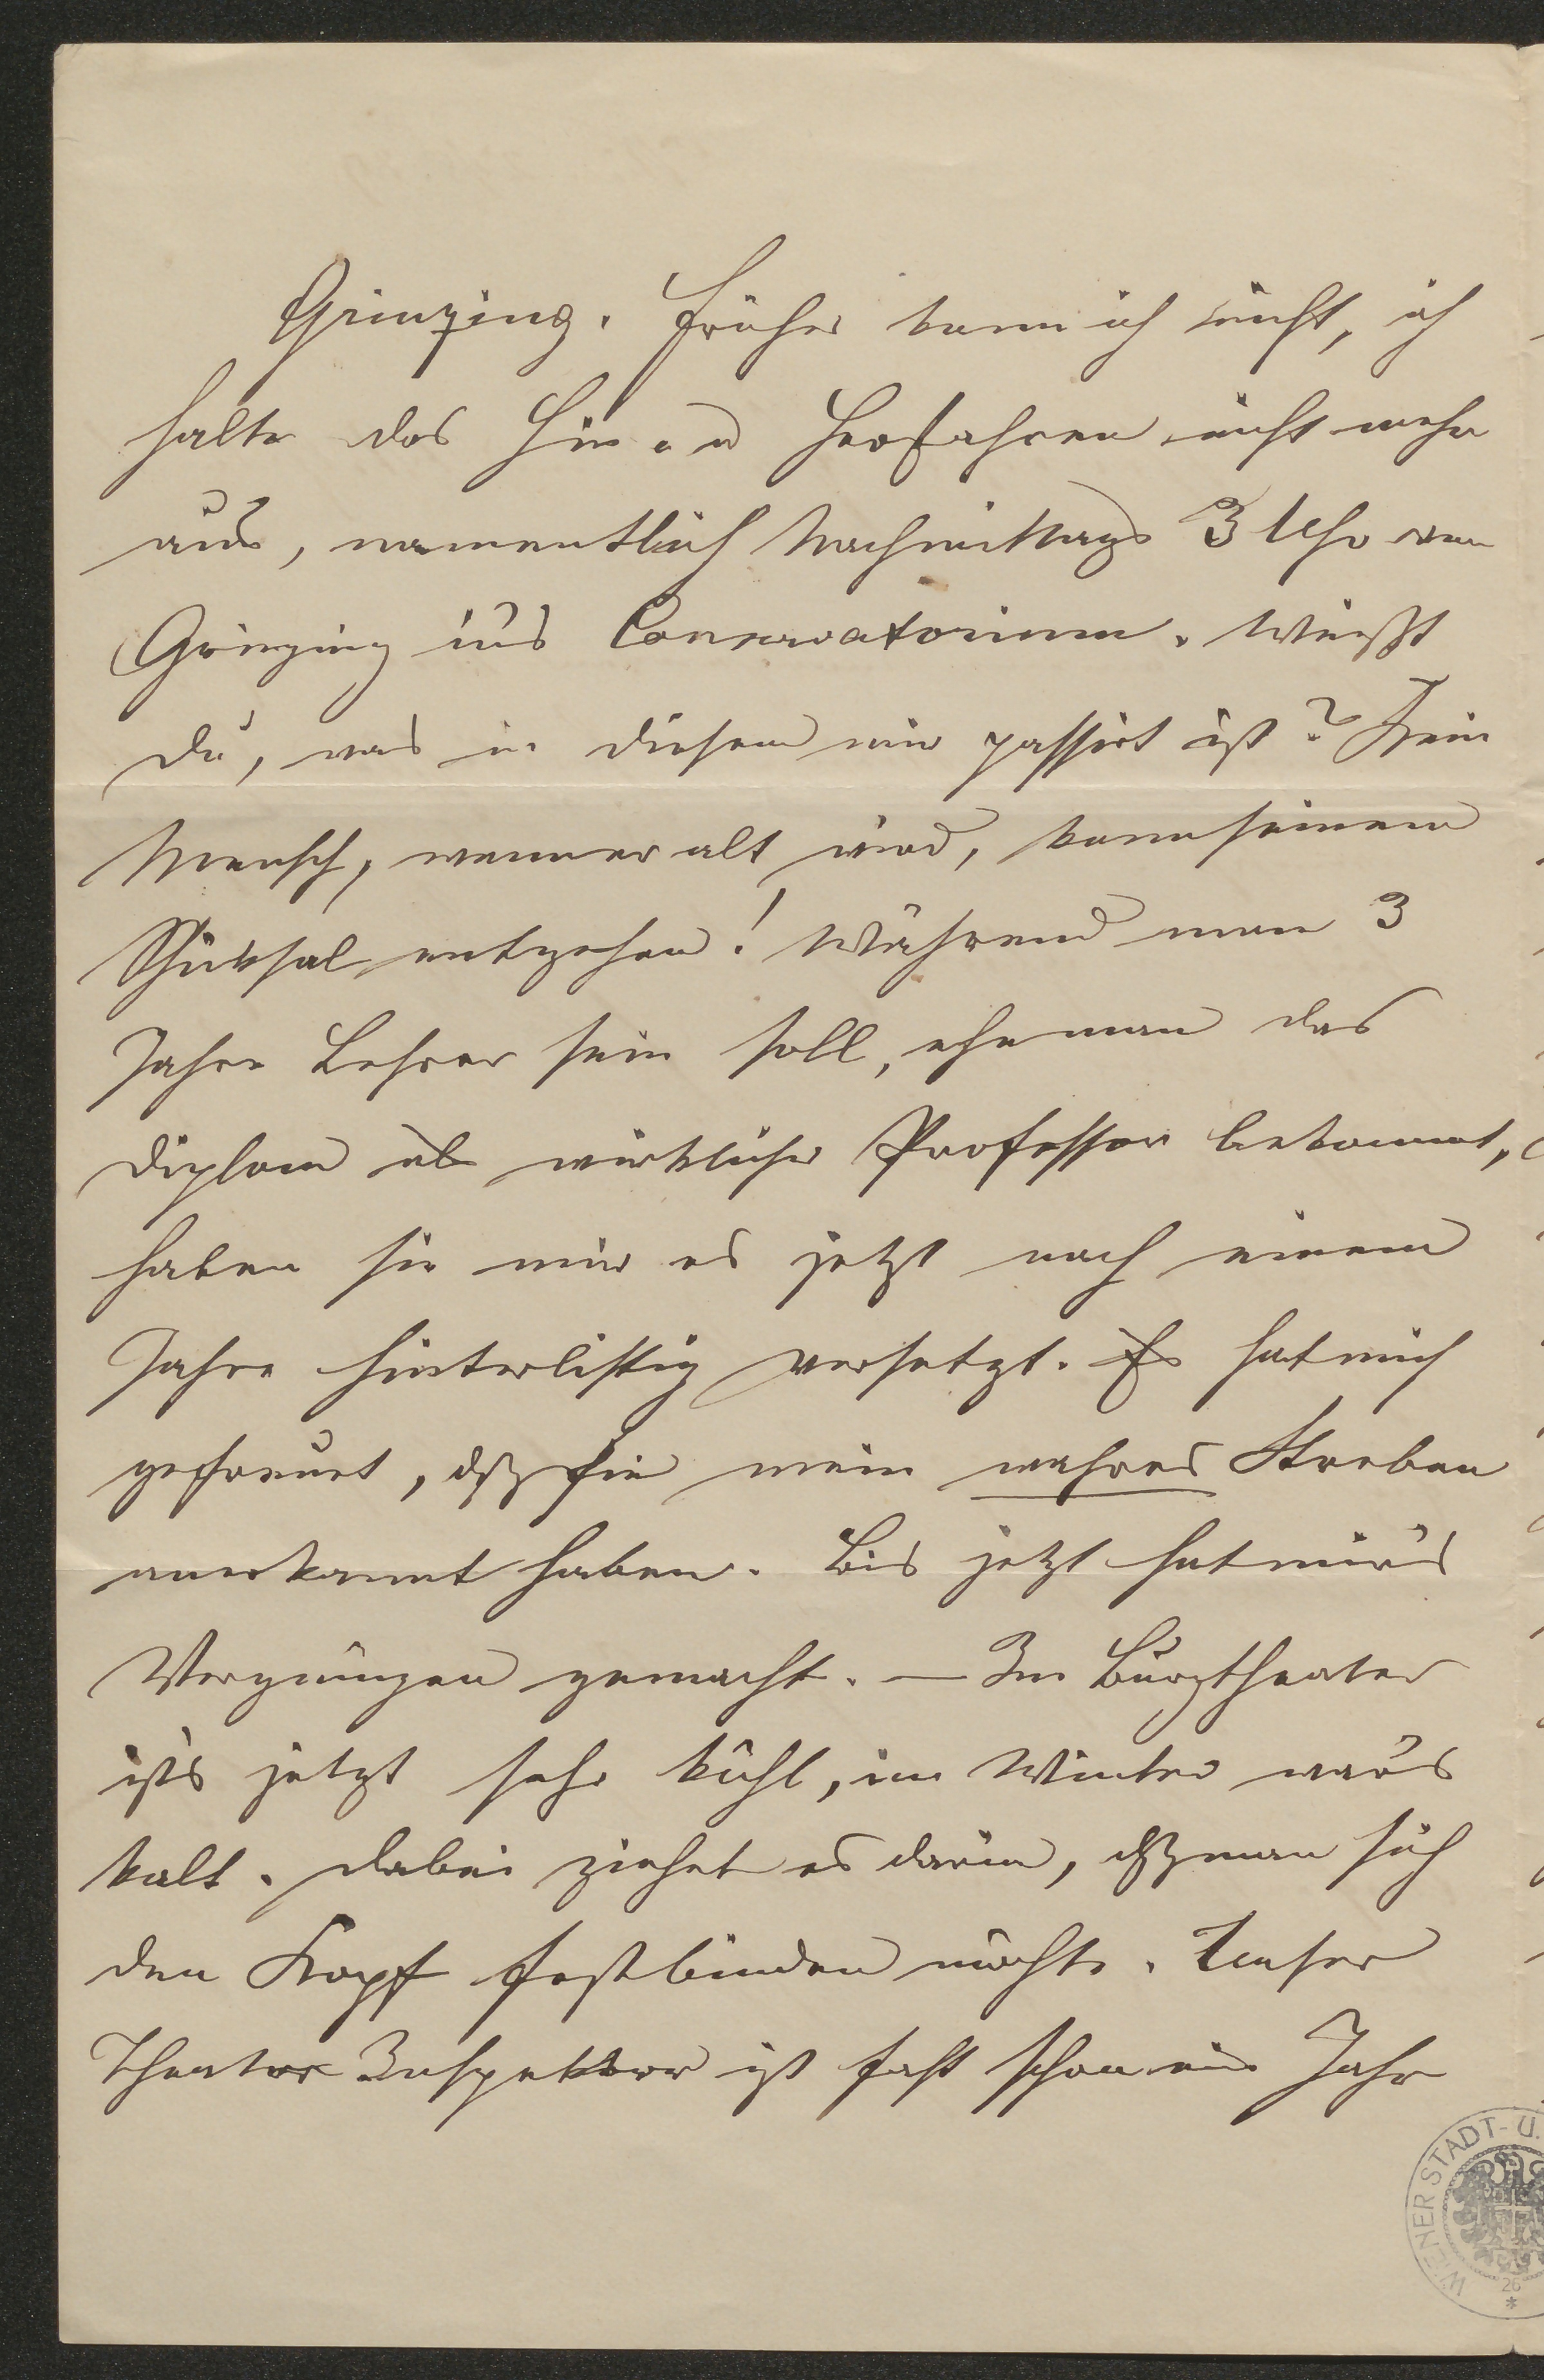 Grinzing. Früher kann ich nicht, ich
halte das Hin u Herfahren nicht mehr
aus, namentlich Nachmittags 3 Uhr von
Grinzing in's Conservatorium. Weißt
du, was in diesem mir passirt ist? Kein
Mensch, wenn er alt wird, kann seinem
Schicksal entgehen! Während man 3
Jahre Lehrer sein soll, ehe man das
Diplom als wirklicher Professor bekommt,
haben sie mir es jetzt nach einem
Jahre hinterlistig versetzt. Es hat mich
gefreut, dß sie mein wahres Streben
anerkannt haben. Bis jetzt hat mir's
Vergnügen gemacht. — Im Burgtheater
ist's jetzt sehr kühl, im Winter war's
kalt. Dabei ziehet es darin, dß man sich
den Kopf festbinden möchte. Unser
Theater Inspektor ist fast schon ein Jahr
WIENER STADT- U.
26